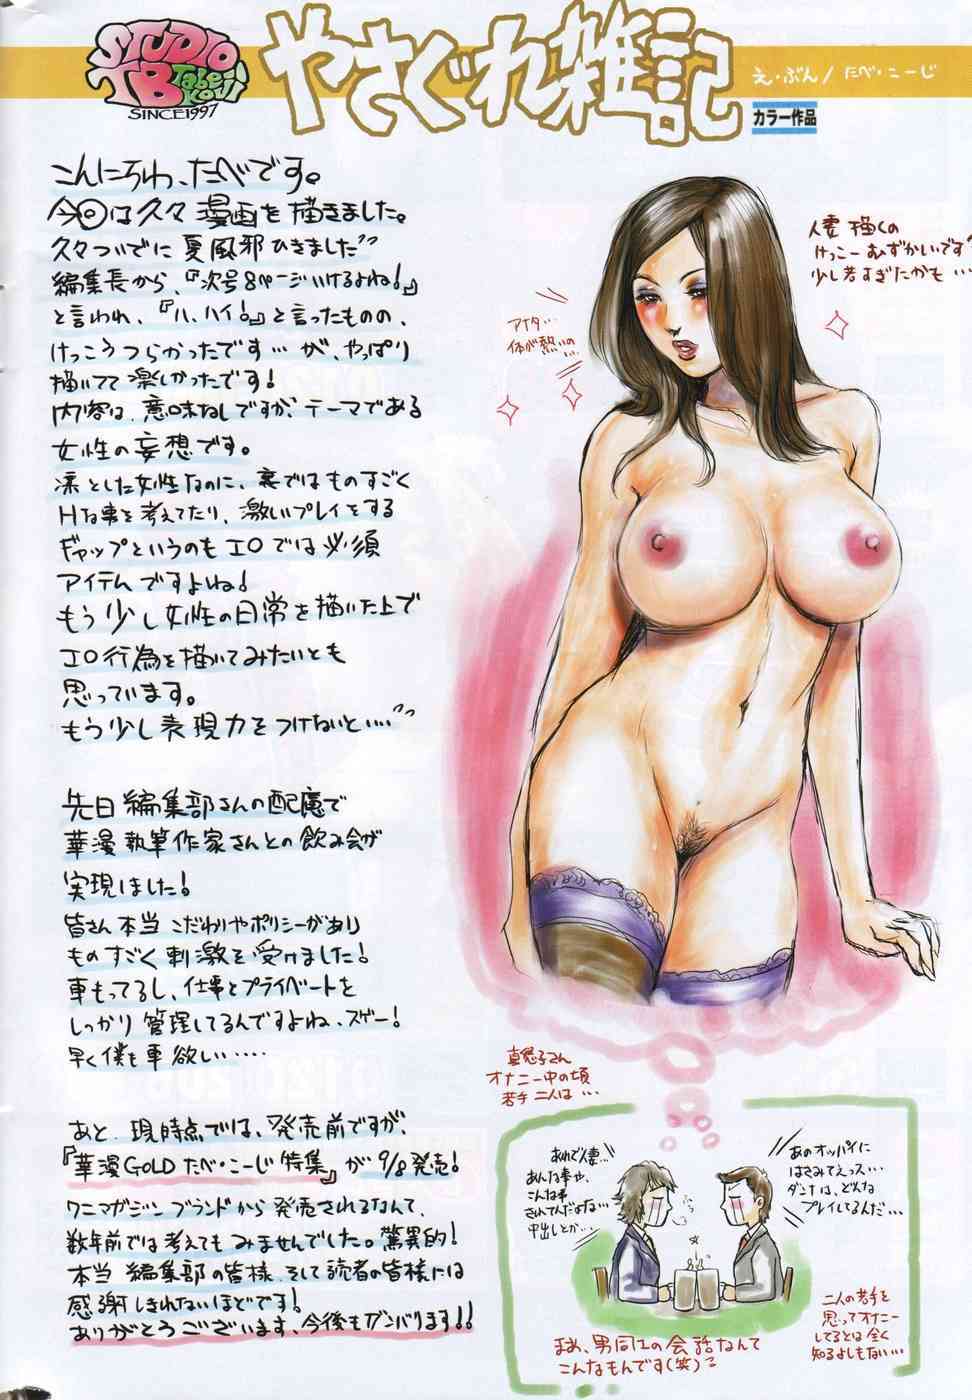 STUDIO
TB Tabe Koji
SINCE1997
やさぐれ雑記
え・ぶん/たべ・こーじ
カラー作品
こんにちわ、たべです。
今回は久々漫画を描きました。
久々ついでに夏風邪ひきました
編集長から、『次号8ページいけるよね!』
と言われ、『ハ、ハイ!』と言ったものの、
けっこうつらかったです…が、やっぱり
描いてて楽しかったです!
内容は、意味なしですが、テーマである
女性の妄想です。
凛とした女性なのに、裏ではものすごく
Hな事を考えてたり、激しいプレイをする
ギャップというのもエロでは必須
アイテムですよね!
もう少し女性の日常を描いた上で
エロ行為を描いてみたいとも
思っています。
もう少し表現力をつけないと‥‥
先日編集部さんの配慮で
華漫執筆作家さんとの飲み会が
実現しました!
皆さん本当こだわりやポリシーがあり
ものすごく刺激を受けました!
車もってるし、仕事とプライベートを
しっかり管理してるんですよね、スゲー!
早く僕も車欲しい‥‥
あと、現時点では、発売前ですが、
『華漫GOLDたべ・こーじ特集』が9/8発売!
ワニマガジンブランドから発売されるなんて、
数年前では考えてもみませんでした。驚異的!
本当編集部の皆様、そして読者の皆様には
感謝しきれないほどです!
ありがとうございます、今後もガンバります!!
人妻描くの
けっこーむずかいです
少し若すぎたかも…
アナタ…
体が熱いの…
オナニー中の頃
若手二人は…
あれで人妻…
あんな事や、
こんな事
されてんだよな…
中出しとか…
あのオッパイに
はさみてえっス…
ダンナは、どんな
プレイしてるんだ…
二人の若手を
思ってオナニー
してるとは全く
知るよしもない…
まあ、男同士の会話なんて
こんなもんです(笑)